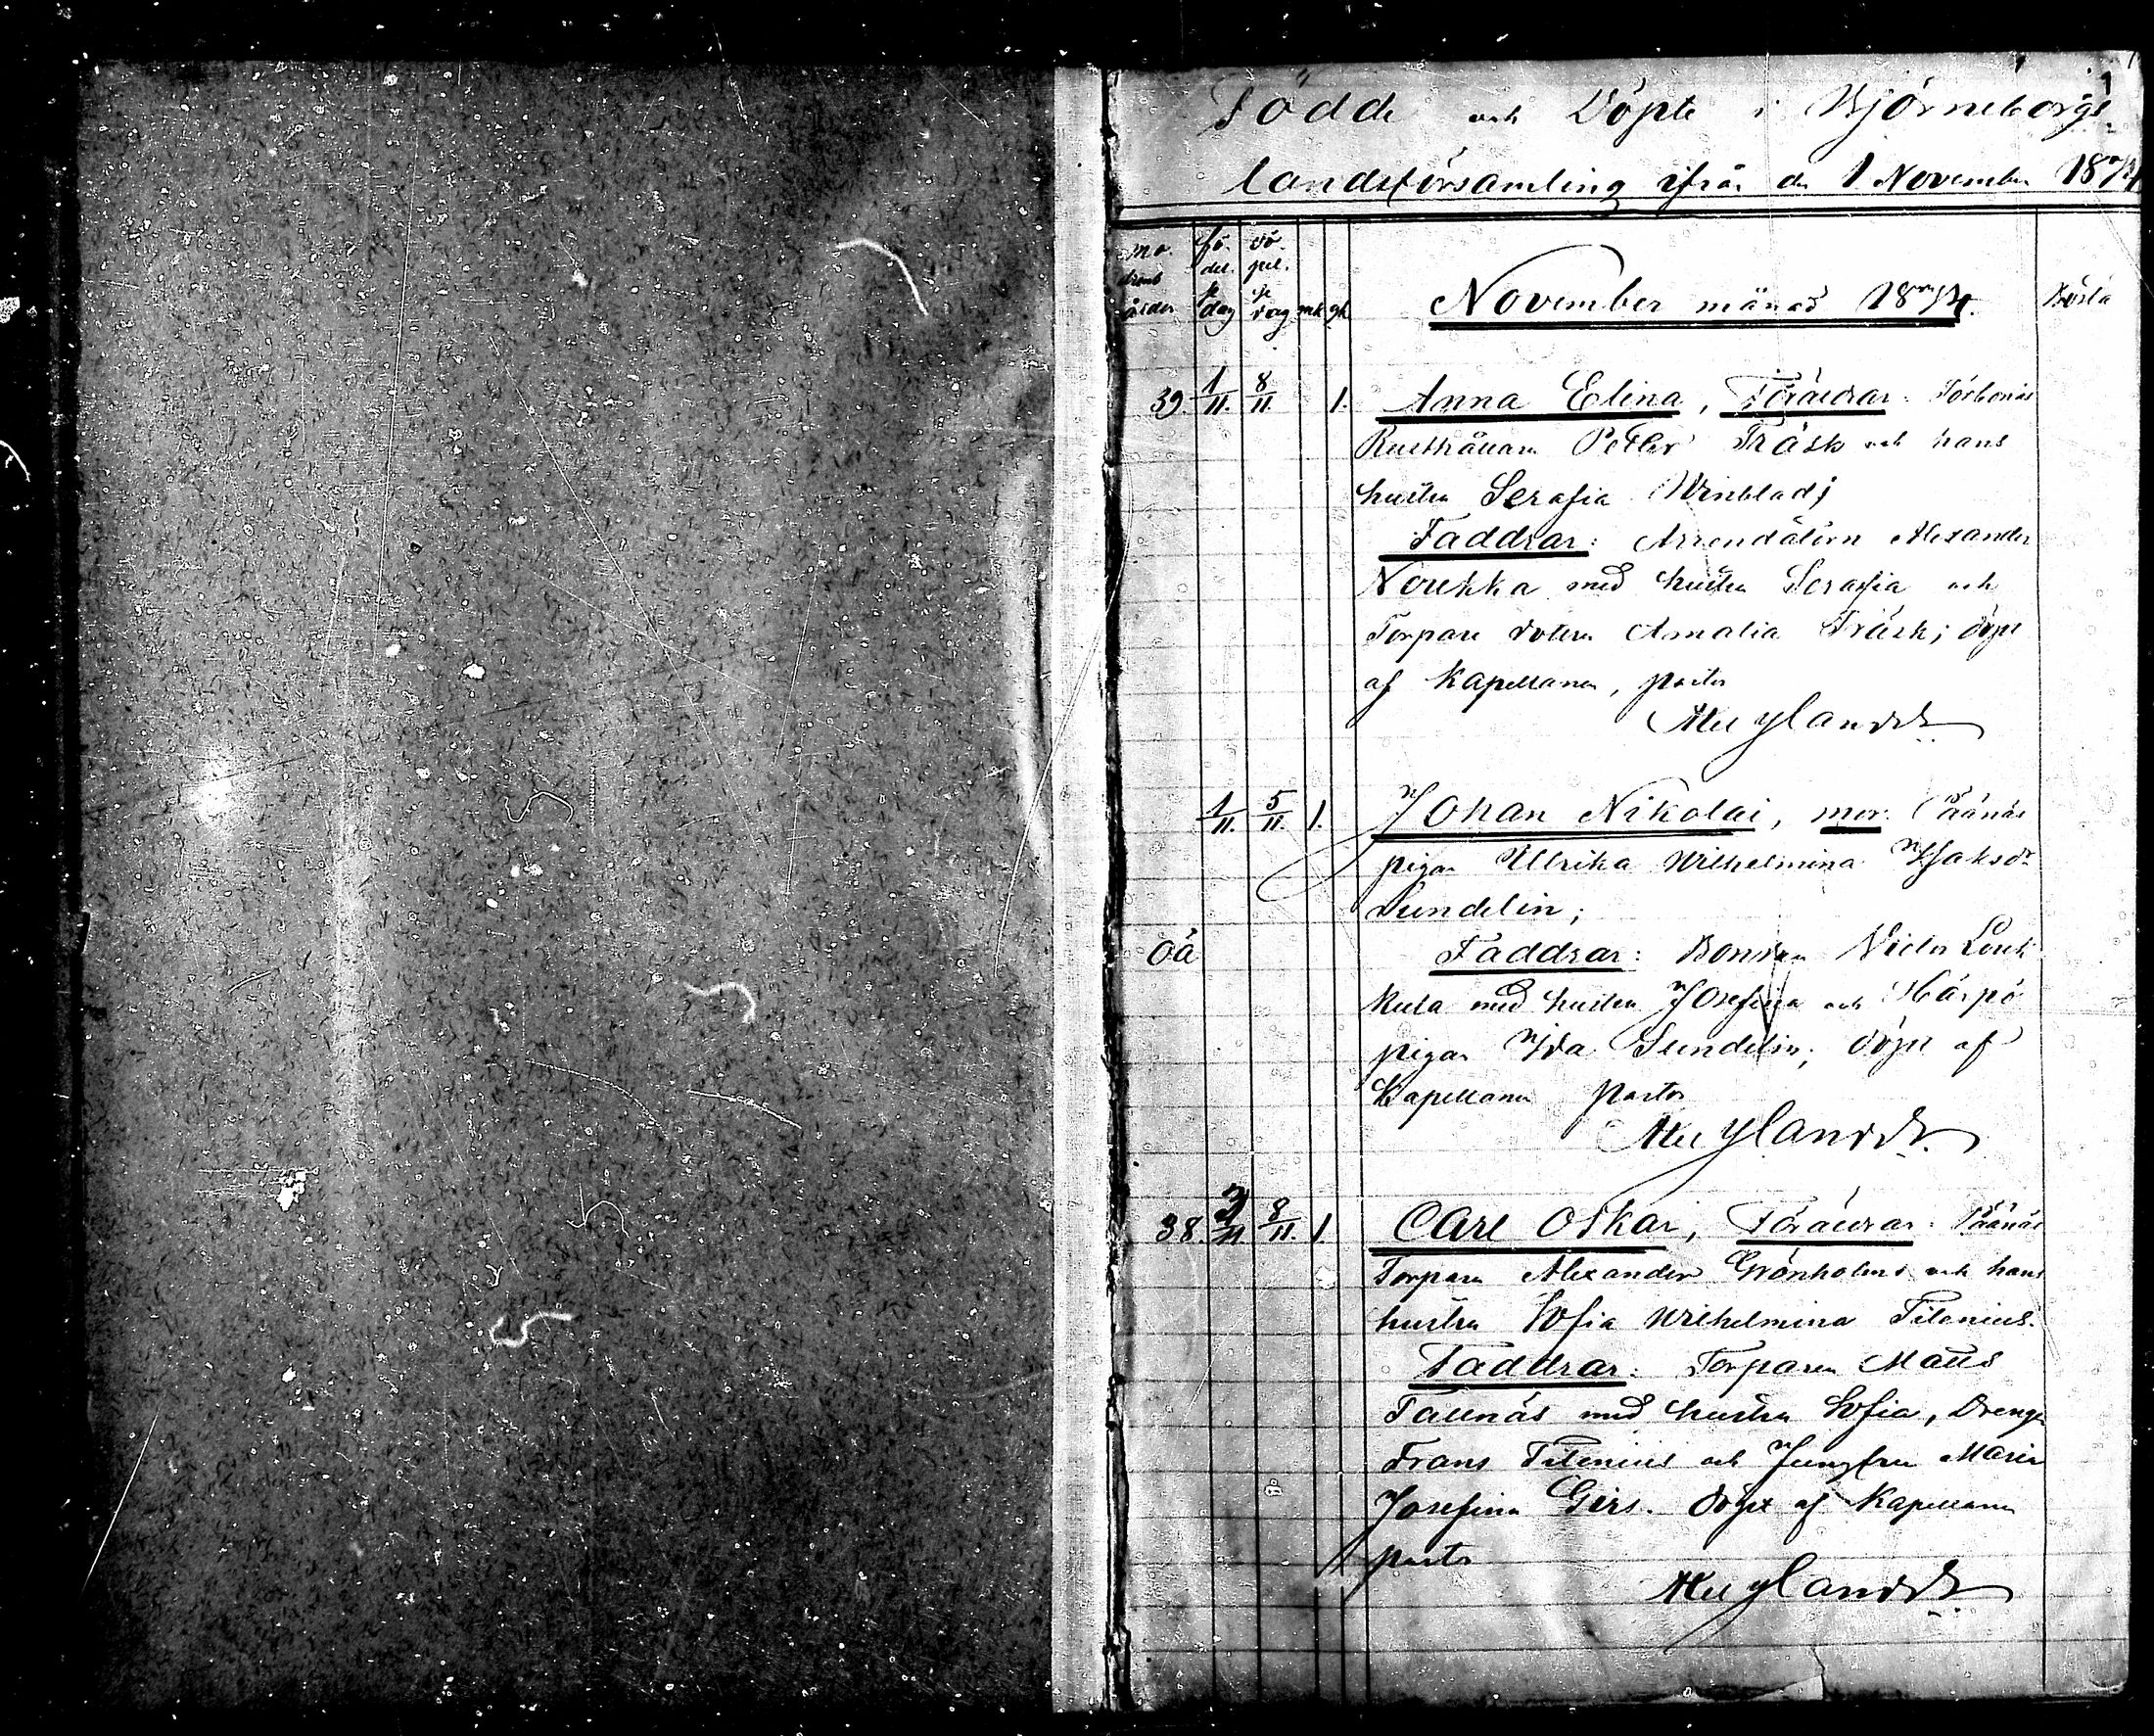 1
Födde och Döpte i Björneborgs
landsförsamling ifrån den 1 November 1874
mo- fö- dö-
drens del- pel-
se se
ålder dag dag mk qk
November månad 1874.
39. 1/11. 8/11. 1. Anna Elina, Föräldrar:
Rusthållaren Petter Träsk och hans
hustru Serafia Winblad;
Faddrar: Arrendatorn Alexander
Noukka med hustru Serafia och
Torpare dotern Amalia Träsk; döpt
af Kapellanen, pastor
Mus Ylander
1/11. 5/11. 1. Johan Nikolai, mor: Påånäs
pigan Ullrika Wilhelmina Isaksdr
Sundelin;
Oä Faddrar: Bonden Victor Louk
kula med hustru Josefina och Härpö
pigan Ida Sundelin; döpt af
Kapellanen pastor
Mus Ylander.
38. 3/11 8/11. 1. Carl Oskar, Föräldrar: Påånäs
Torparen Alexander Grönholm och hans
hustru Sofia Wilhelmina Filenius.
Faddrar: Torparen Matts
Tallnäs med hustru Sofia, Drengen
Frans Filenius och Jungfru Maria
Josefina Girs. Döpt af Kapellanen
pastor
Mus Ylander